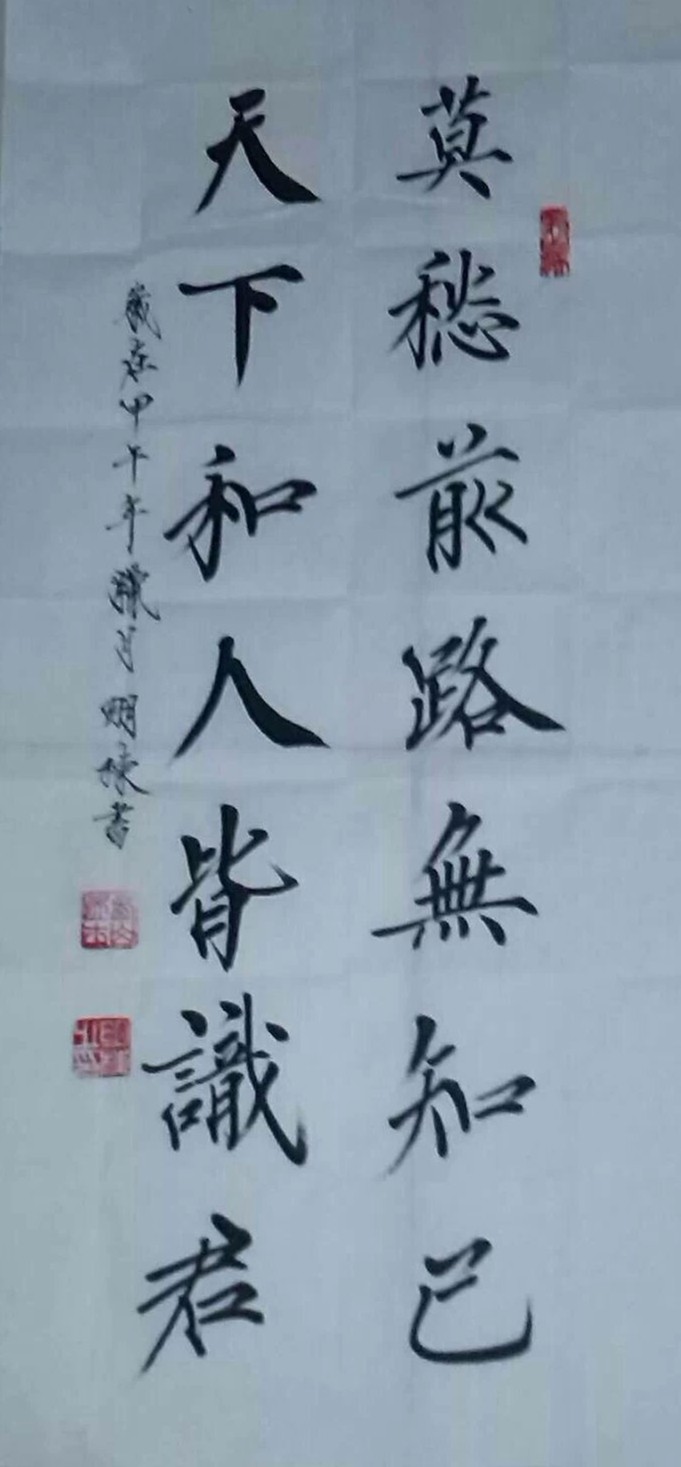 莫愁前路無知己
天下和人皆識君
歲在甲午年臘月明棟書